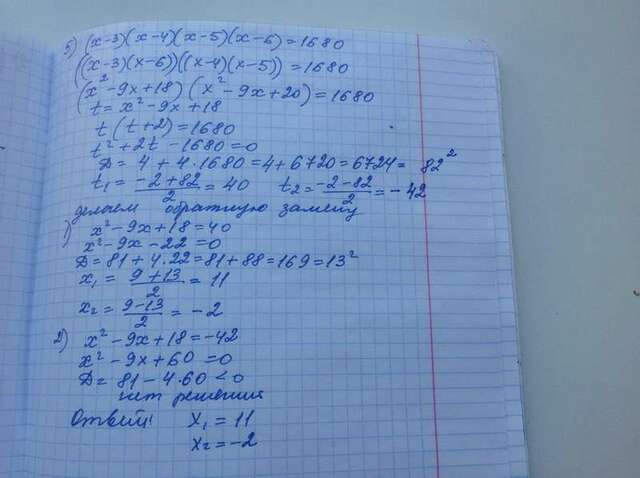 5) (x-3)(x-4)(x-5)(x-6)=1680
((x-3)(x-6))((x-4)(x-5))=1680
(x²-9x+18)(x²-9x+20)=1680
t=x²-9x+18
t(t+2)=1680
t²+2t-1680=0
D=4+4·1680=4+6720=6724=82²
t₁=(-2+82)/2=40 t₂=(-2-82)/2=-42
делаем обратную замену
1) x²-9x+18=40
x²-9x-22=0
D=81+4·22=81+88=169=13²
x₁=(9+13)/2=11
x₂=(9-13)/2=-2
2) x²-9x+18=-42
x²-9x+60=0
D=81-4·60<0
нет решений
Ответ: x₁=11
x₂=-2